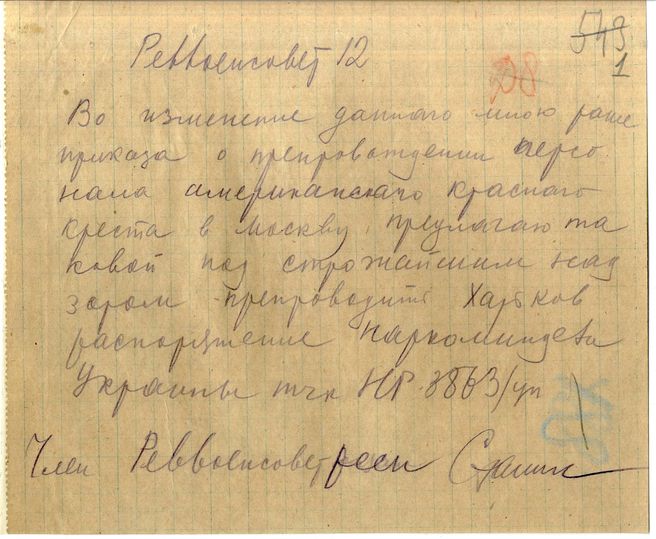 549
1
Реввоенсовет 12
Во изменение даннаго мною ранее
приказа о препровождении персо
нала американскаго краснаго
креста в Москву предлагаю та
ковой под строжайшим над
зором препроводить Харьков
распоряжение Наркоминдела
Украины тчк НР 3863/уп
Член Реввоенсоветреси Сталин